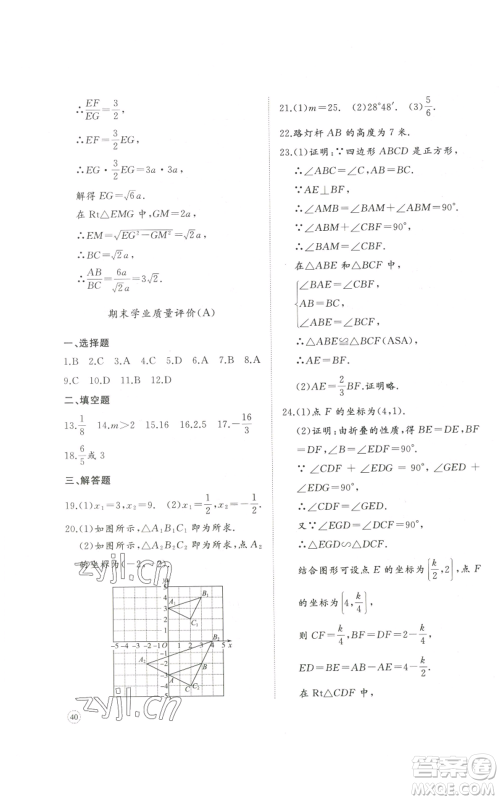 ∴EF/EG=3/2,
∴EH/EG=3/2,
∴EG·3/2EG=3a·3a,
解得 EG=√6a.
在 Rt△EMG 中,GM=2a,
∴EM=√(EG²-GM²)=√2a,
∴BC=√2a,
∴AB/BC=6a/√2a=3√2.
期末学业质量评价(A)
一、选择题
1.B 2.C 3.A 4.D 5.D 6.B 7.B 8.D
9.C 10.D 11.C 12.D
二、填空题
13.1/8 14.m>2 15.2 16.2.5 17.-16/3
18.6/5或3
三、解答题
19.(1)x₁=3,x₂=9. (2)x₁=1/2,x₂=1/2.
20.(1)如图所示,△A₁B₁C₁ 即为所求.
(2)如图所示,△A₂B₂C₂ 即为所求,点 A₂
的坐标为(-2,-2)
zyjl.cn
40
21.(1)m=25. (2)28°48′. (3)5/6.
22.路灯杆 AB 的高度为 7 米.
23.(1)证明:∵四边形 ABCD 是正方形,
∴∠ABC=∠C=90°,AB=BC.
∵AE⊥BF,
∴∠AMB=∠BAM+∠ABM=90°.
∵∠ABM+∠CBF=90°,
∴∠BAM=∠CBF.
在△ABE 和△BCF 中,
{∠BAE=∠CBF,
AB=BC,
∠ABE=∠BCF=90°,
∴△ABE≌△BCF(ASA).
∴AE=BF.
(2)AE=2/3BF.证明略.
24.(1)点 F 的坐标为(4,1).
(2)证明:由折叠的性质,得 BE=
DF,∠BF=DF,∠B=∠EDF=90°.
∵∠CDF+∠EDG=90°,∠GED+
∠EDG=90°,
∴∠CDF=∠GED.
又∵∠EGD=∠DCF=90°,
∴△EGD∽△DCF.
结合图形可设点 E 的坐标为{k/2,2},点 F
的坐标为{4,k/4},
则 CF=k/4,BF=DF=2-k/4,
ED=BE=AB-AE=4-k/2.
在 Rt△CDF 中,
答案圈
MXQE.COM